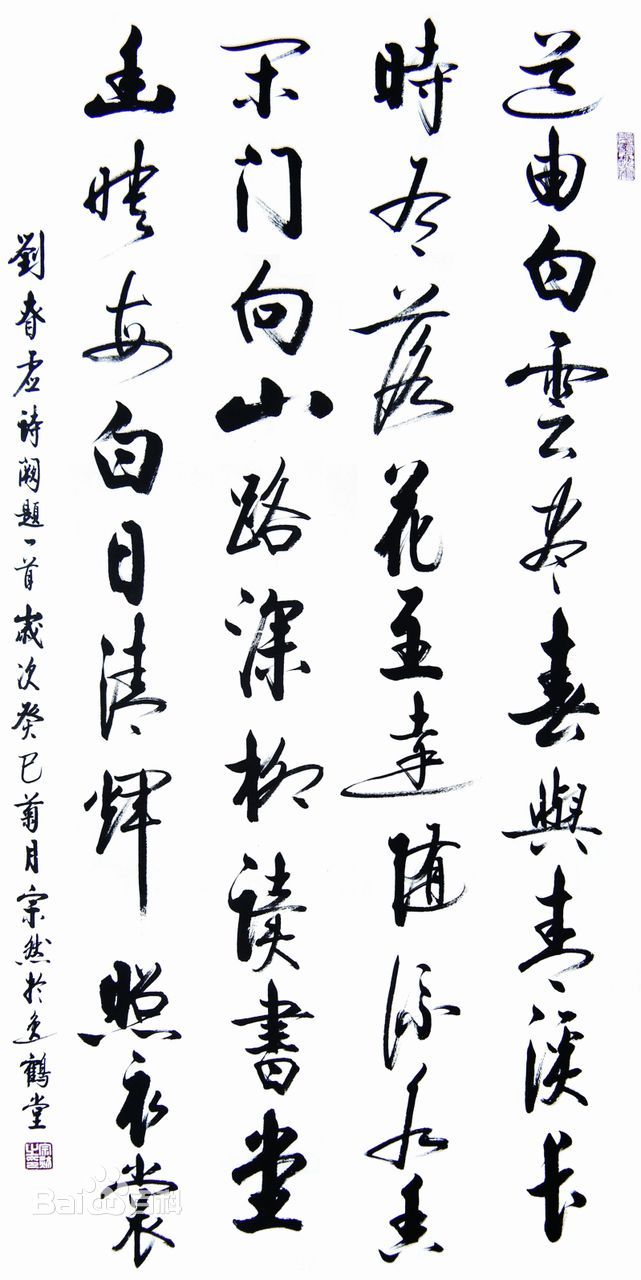 道由白雲盡春與青溪長
時有落花至遠随流水香
闲门向山路深柳读書堂
幽映每白日清煇照衣裳
劉眘虚诗阙題一首歲次癸巳菊月宗然於逸鶴堂
Bai百科